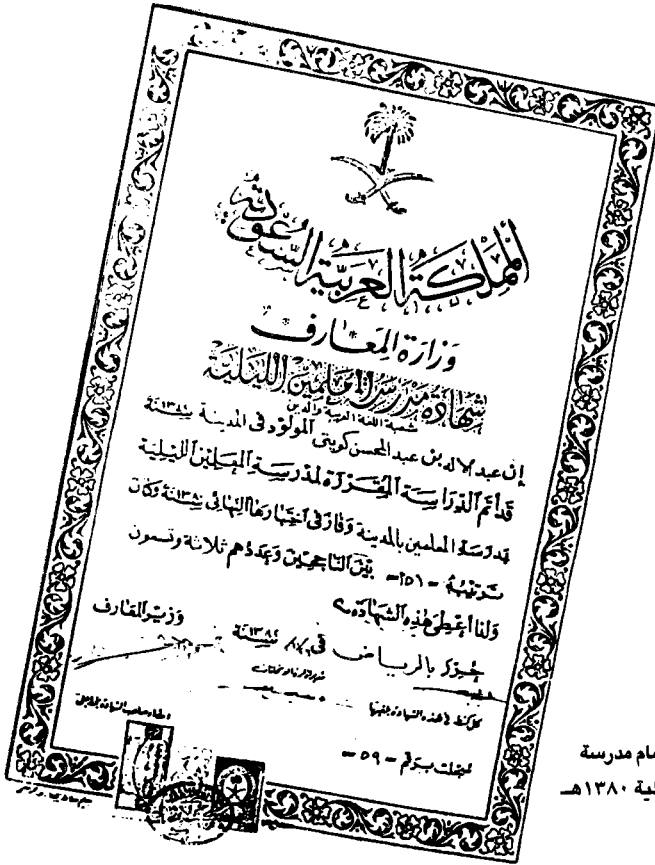 المملكة العربية السعودية
وزارة المعارف
شهادة مدرسة المعلمين الليلية
شعبة اللغة العربية والدين
إن عبد الاله بن عبد المحسن كويتي المولود في المدينة سنة
قد أتم الدراسة المقررة لمدرسة المعلمين الليلية
بمدرسة المعلمين بالمدينة وفاز في اختبارها النهائي سنة ١٣٨٠ وكان
ترتيبه -٥١- بين الناجحين وعددهم ثلاثة وتسعون
ولذا أعطي هذه الشهادة
حرر بالرياض في سنة
وزير المعارف
كل كشط في هذه الشهادة يلغيها
سجلت برقم - ٥٩ -
امضاء صاحب الشهادة
مام مدرسة
لية ١٣٨٠هـ